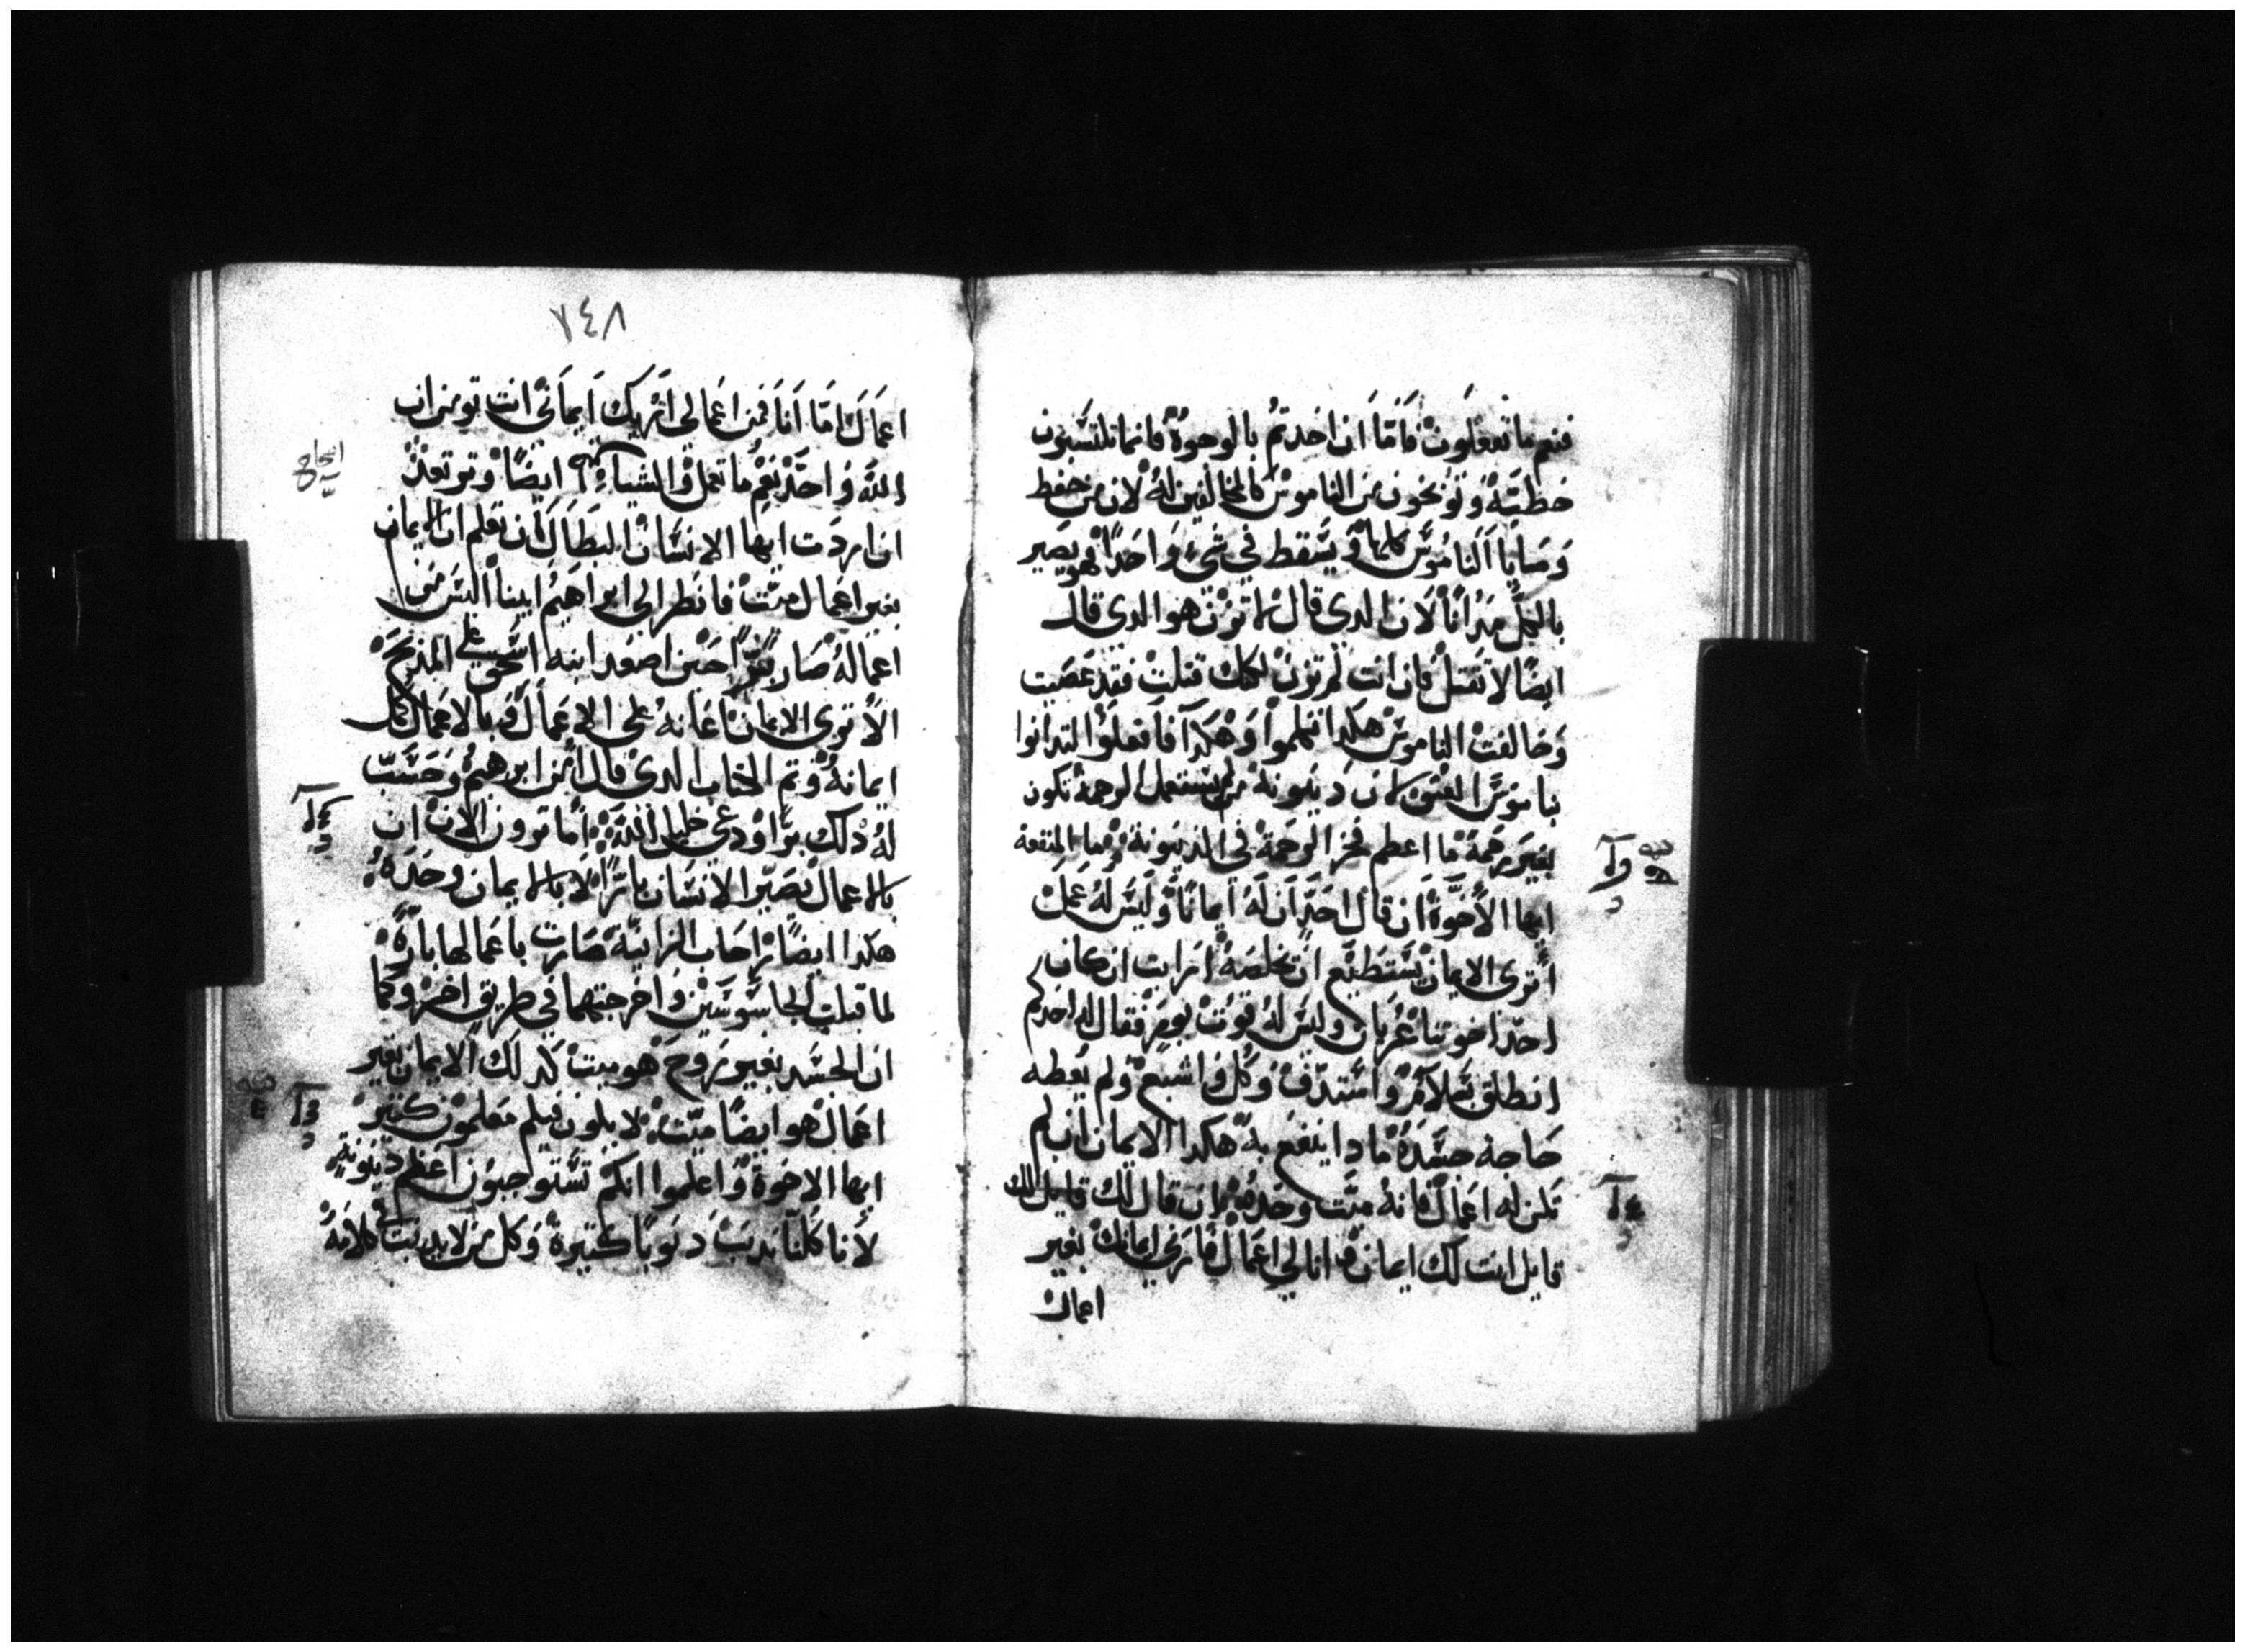 فنعم ما تفعلون فاما ان اخدتم بالوجوه فانما تكتسبون
خطيه وتوبخون من الناموس كالمخالفين له لان من حفظ
وصايا الناموس كلها ويسقط في شي واحد فهو يصير
بالكل مدانا لان الدي قال لا تزن هو الدي قال
ايضا لا تقتل فان انت لم تزن لكنك قتلت فقد عصيت
وخالفت الناموس هكدا تكلموا وهكدا فافعلوا لتدانوا
بناموس العتق لان دينونة من لم يستعمل الرحمة تكون
بغير رحمة ما اعظم فخر الرحمة في الدينونة وما المنفعة
ايها الاخوة ان قال احد ان له ايمانا وليس له عمل
اترى الايمان يستطيع ان يخلصه ارايت ان كان
احد اخوتنا عريان وليس له قوت يوم فقال له احدكم
انطلق بسلامة واستدف وكل واشبع ولم يعطه
حاجة جسده مادا ينفع به هكدا الايمان ان لم
تكن له اعمال فانه ميت وحده وان قال لك قايل لك
قايل انت لك ايمان وانا لي اعمال فارني ايمانك بغير
اعمال
٢٤٨
اعمالك اما انا فمن اعمالي اريك ايماني انت تومن ان
الله واحد نعم ما تعمل والشياطين ايضا وتوتعد
ان اردت ايها الانسان البطال ان تعلم ان الايمان
بغير اعمال ميت فانظر الى ابراهيم ابينا اليس من
اعماله صار برا حين اصعد ابنه اسحق على المدبح
الا ترى الايمان اعانه على الاعمال وبالاعمال كمل
ايمانه وتم الكتاب الدي قال امن ابرهيم وحسب
له دلك برا ودعي خليل الله اما ترون الان ان
بالاعمال يصير الانسان بارا لا بالايمان وحده
هكدا ايضا راحاب الزانية صارت باعمالها بارة
لما قبلت الجاسوسين واخرجتهما في طريق اخر وكما
ان الجسد بغير روح هو ميت كدلك الايمان بغير
اعمال هو ايضا ميت لا يكون فيكم معلمون كتير
ايها الاخوة واعلموا انكم تستوجبون اعظم دينونة
لانا كلنا ندنب دنوبا كتيرة وكل من لا يدنب في كلامه